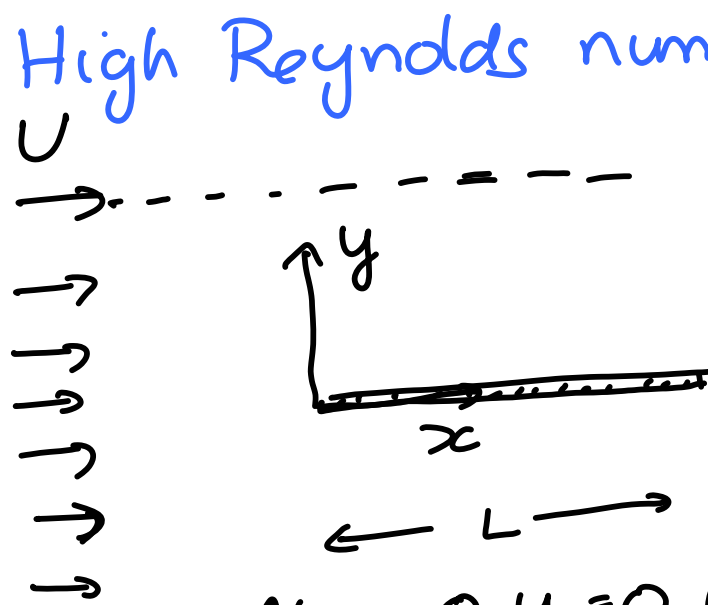 High Reynolds num
U
y
x
L